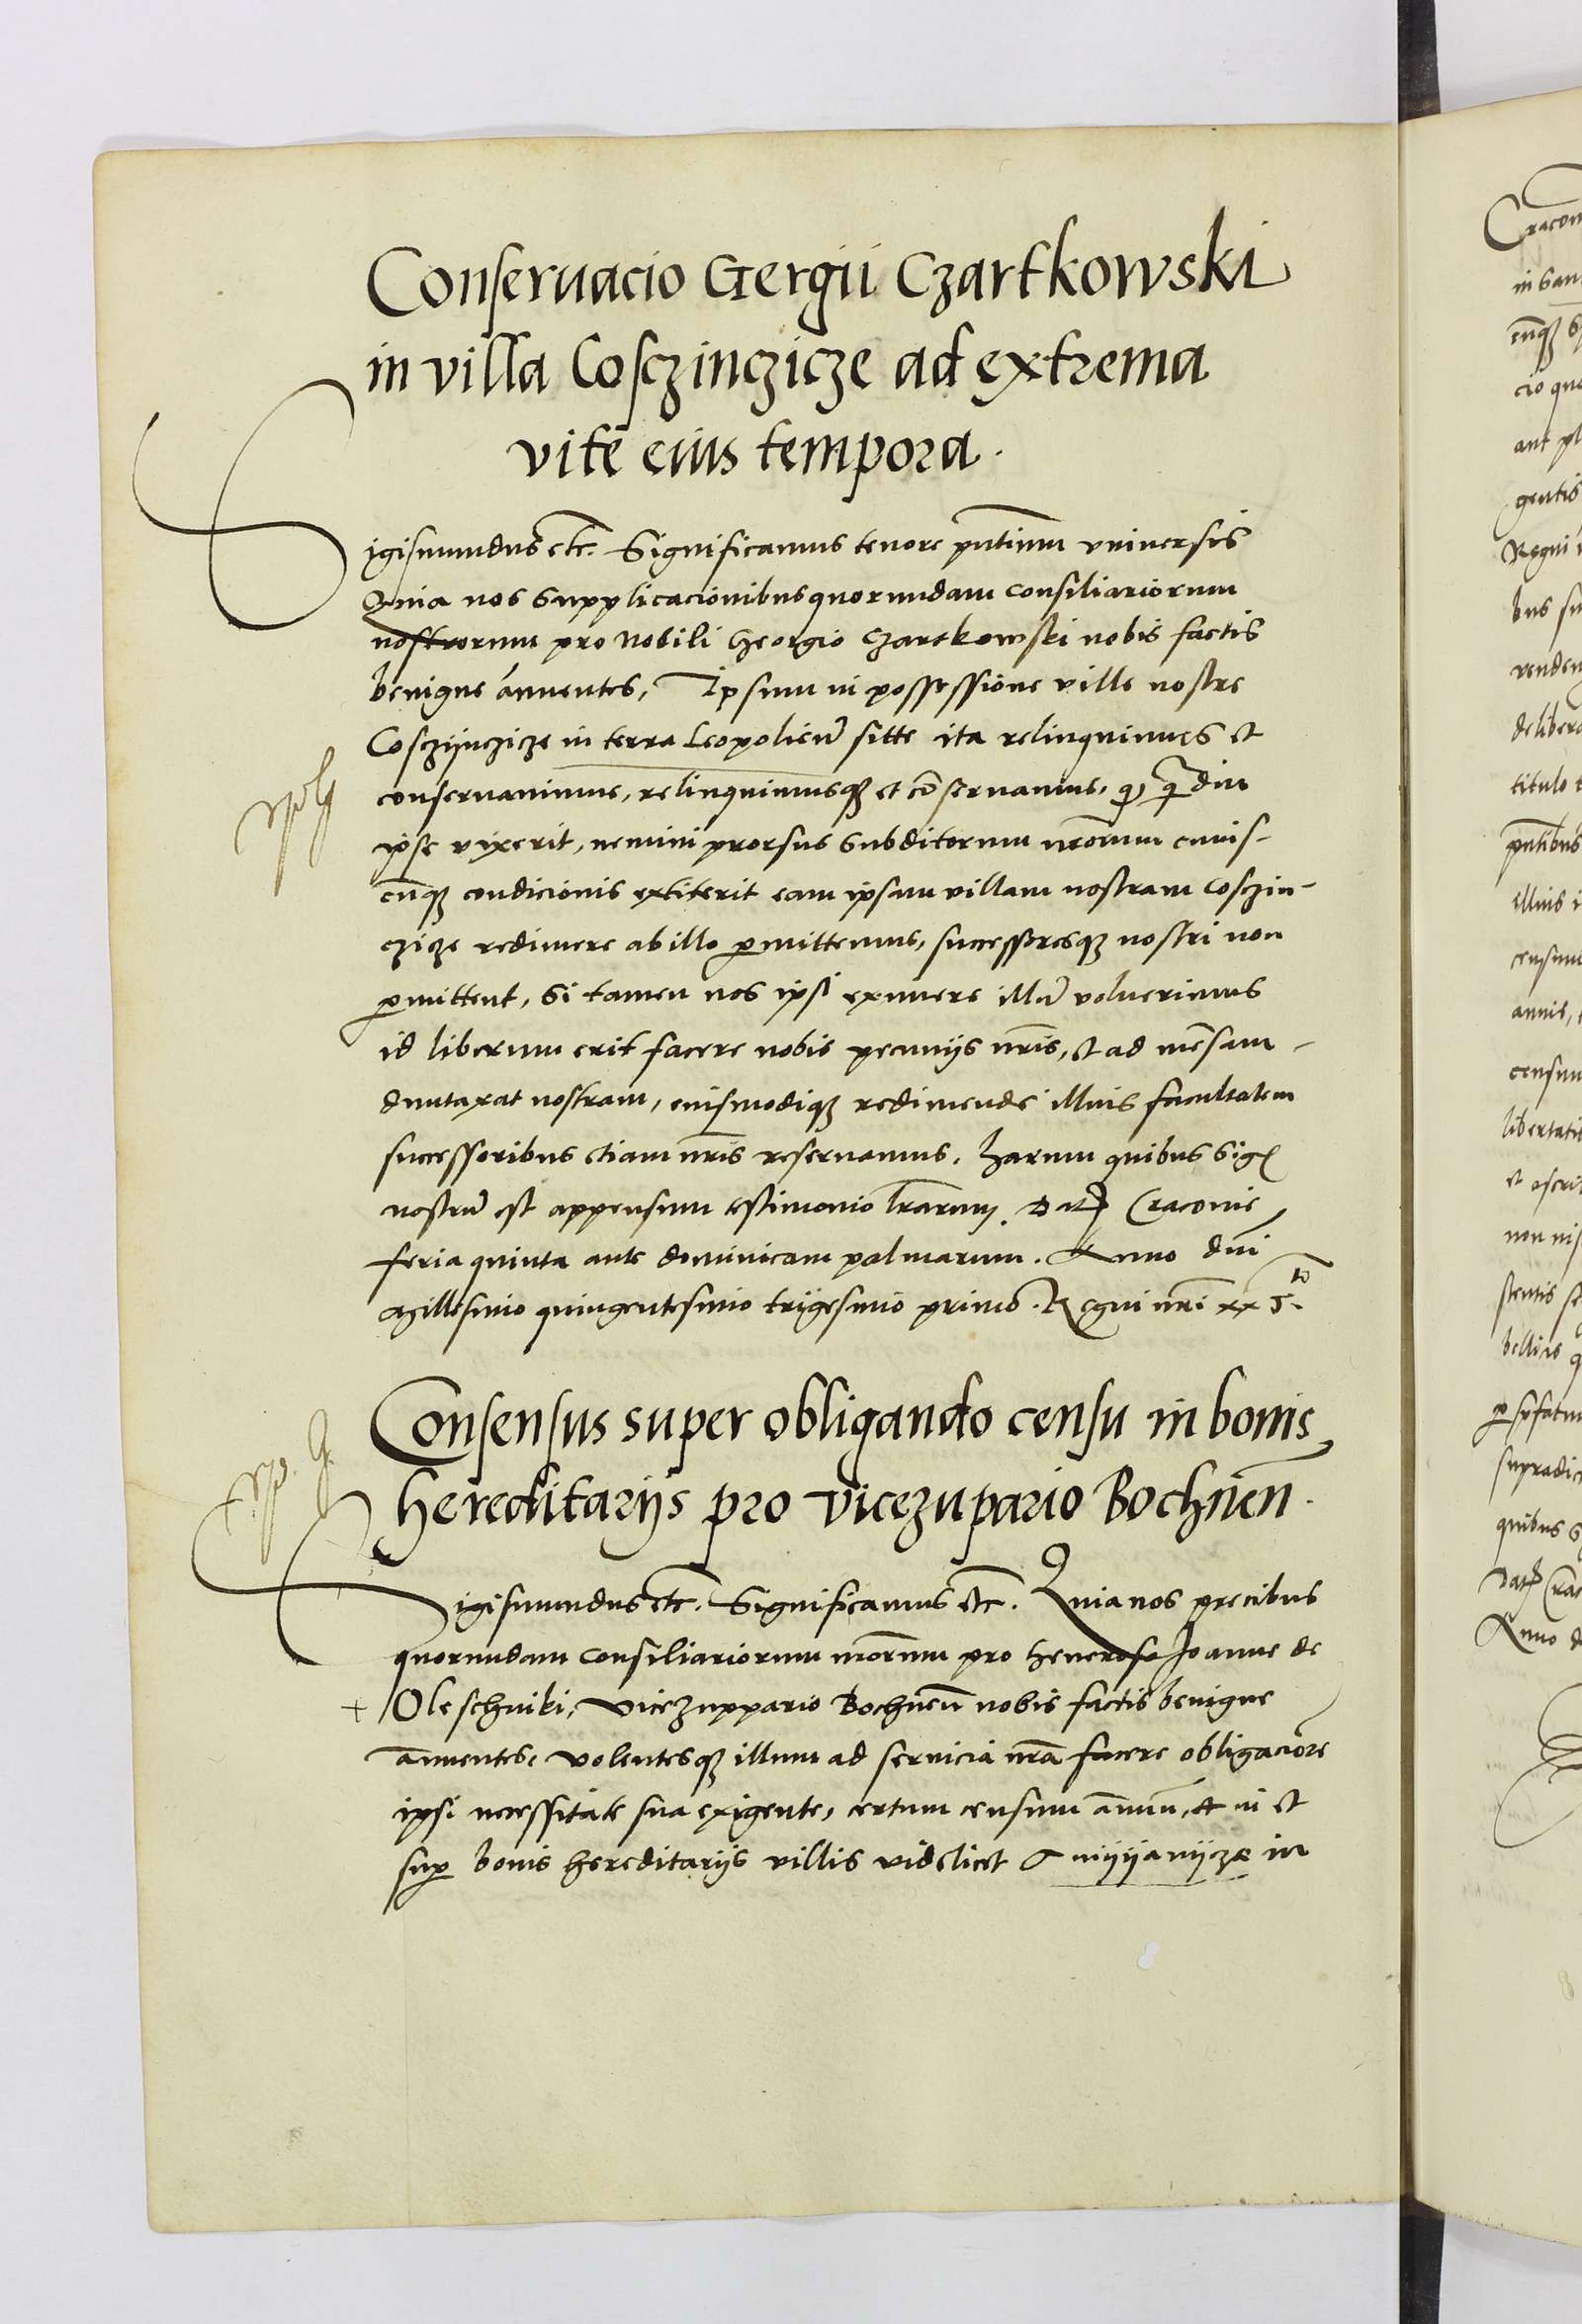 Conseruacio Gergii Czartkowski
in villa Cosczinczicze ad extrema
vite eius tempora.
Sigismundus etc. Significamus tenore pntium vniuersis
Quia nos supplicacionibus quorundam consiliariorum
nostrorum pro Nobili Georgio Czartkowski nobis factis
benigne annuentes, Ipsum in possessione ville nostre
Cosczijnczicze in terra Leopolien sitte ita relinquimus et
conseruauimus, relinquimusq et coseruamus, q qdiu
ipse vixerit, nemini prorsus subditorum nrorum cuius-
cuq condicionis extiterit eam ipsam villam nostram Cosczin-
czicze redimere ab illo pmittemus, successoresq nostri non
pmittent, Si tamen nos ipsi exuuere illu voluerimus
id liberum erit facere nobis pecunijs nris, et ad mesam
duntaxat nostram, euismodiq redimende illius facultatem
successoribus etiam nris reseruamus, harum quibus Sig
nostru est appensum testimonio lrarum. Dat Craconie
feria quinta ante dominicam palmarum. Anno dni
Millesimo quingentesimo trijgesimo primo. Regni nri xx5.to
Consensus super obligando censu in bonis
hereditarijs pro vicezupario Bochnen.
Sigismundus etc. Significamus etc. Quia nos precibus
quorundam consiliariorum nrorum pro Generoso Joanne de
+ Oleschniki, vicezuppario Bochnen nobis factis benigne
annuentes, volentesq illum ad seruicia nra facere obligaciore
ipsi necessitate sua exigente, certum censum annuu, in et
sup bonis hereditarijs villis videlicet in